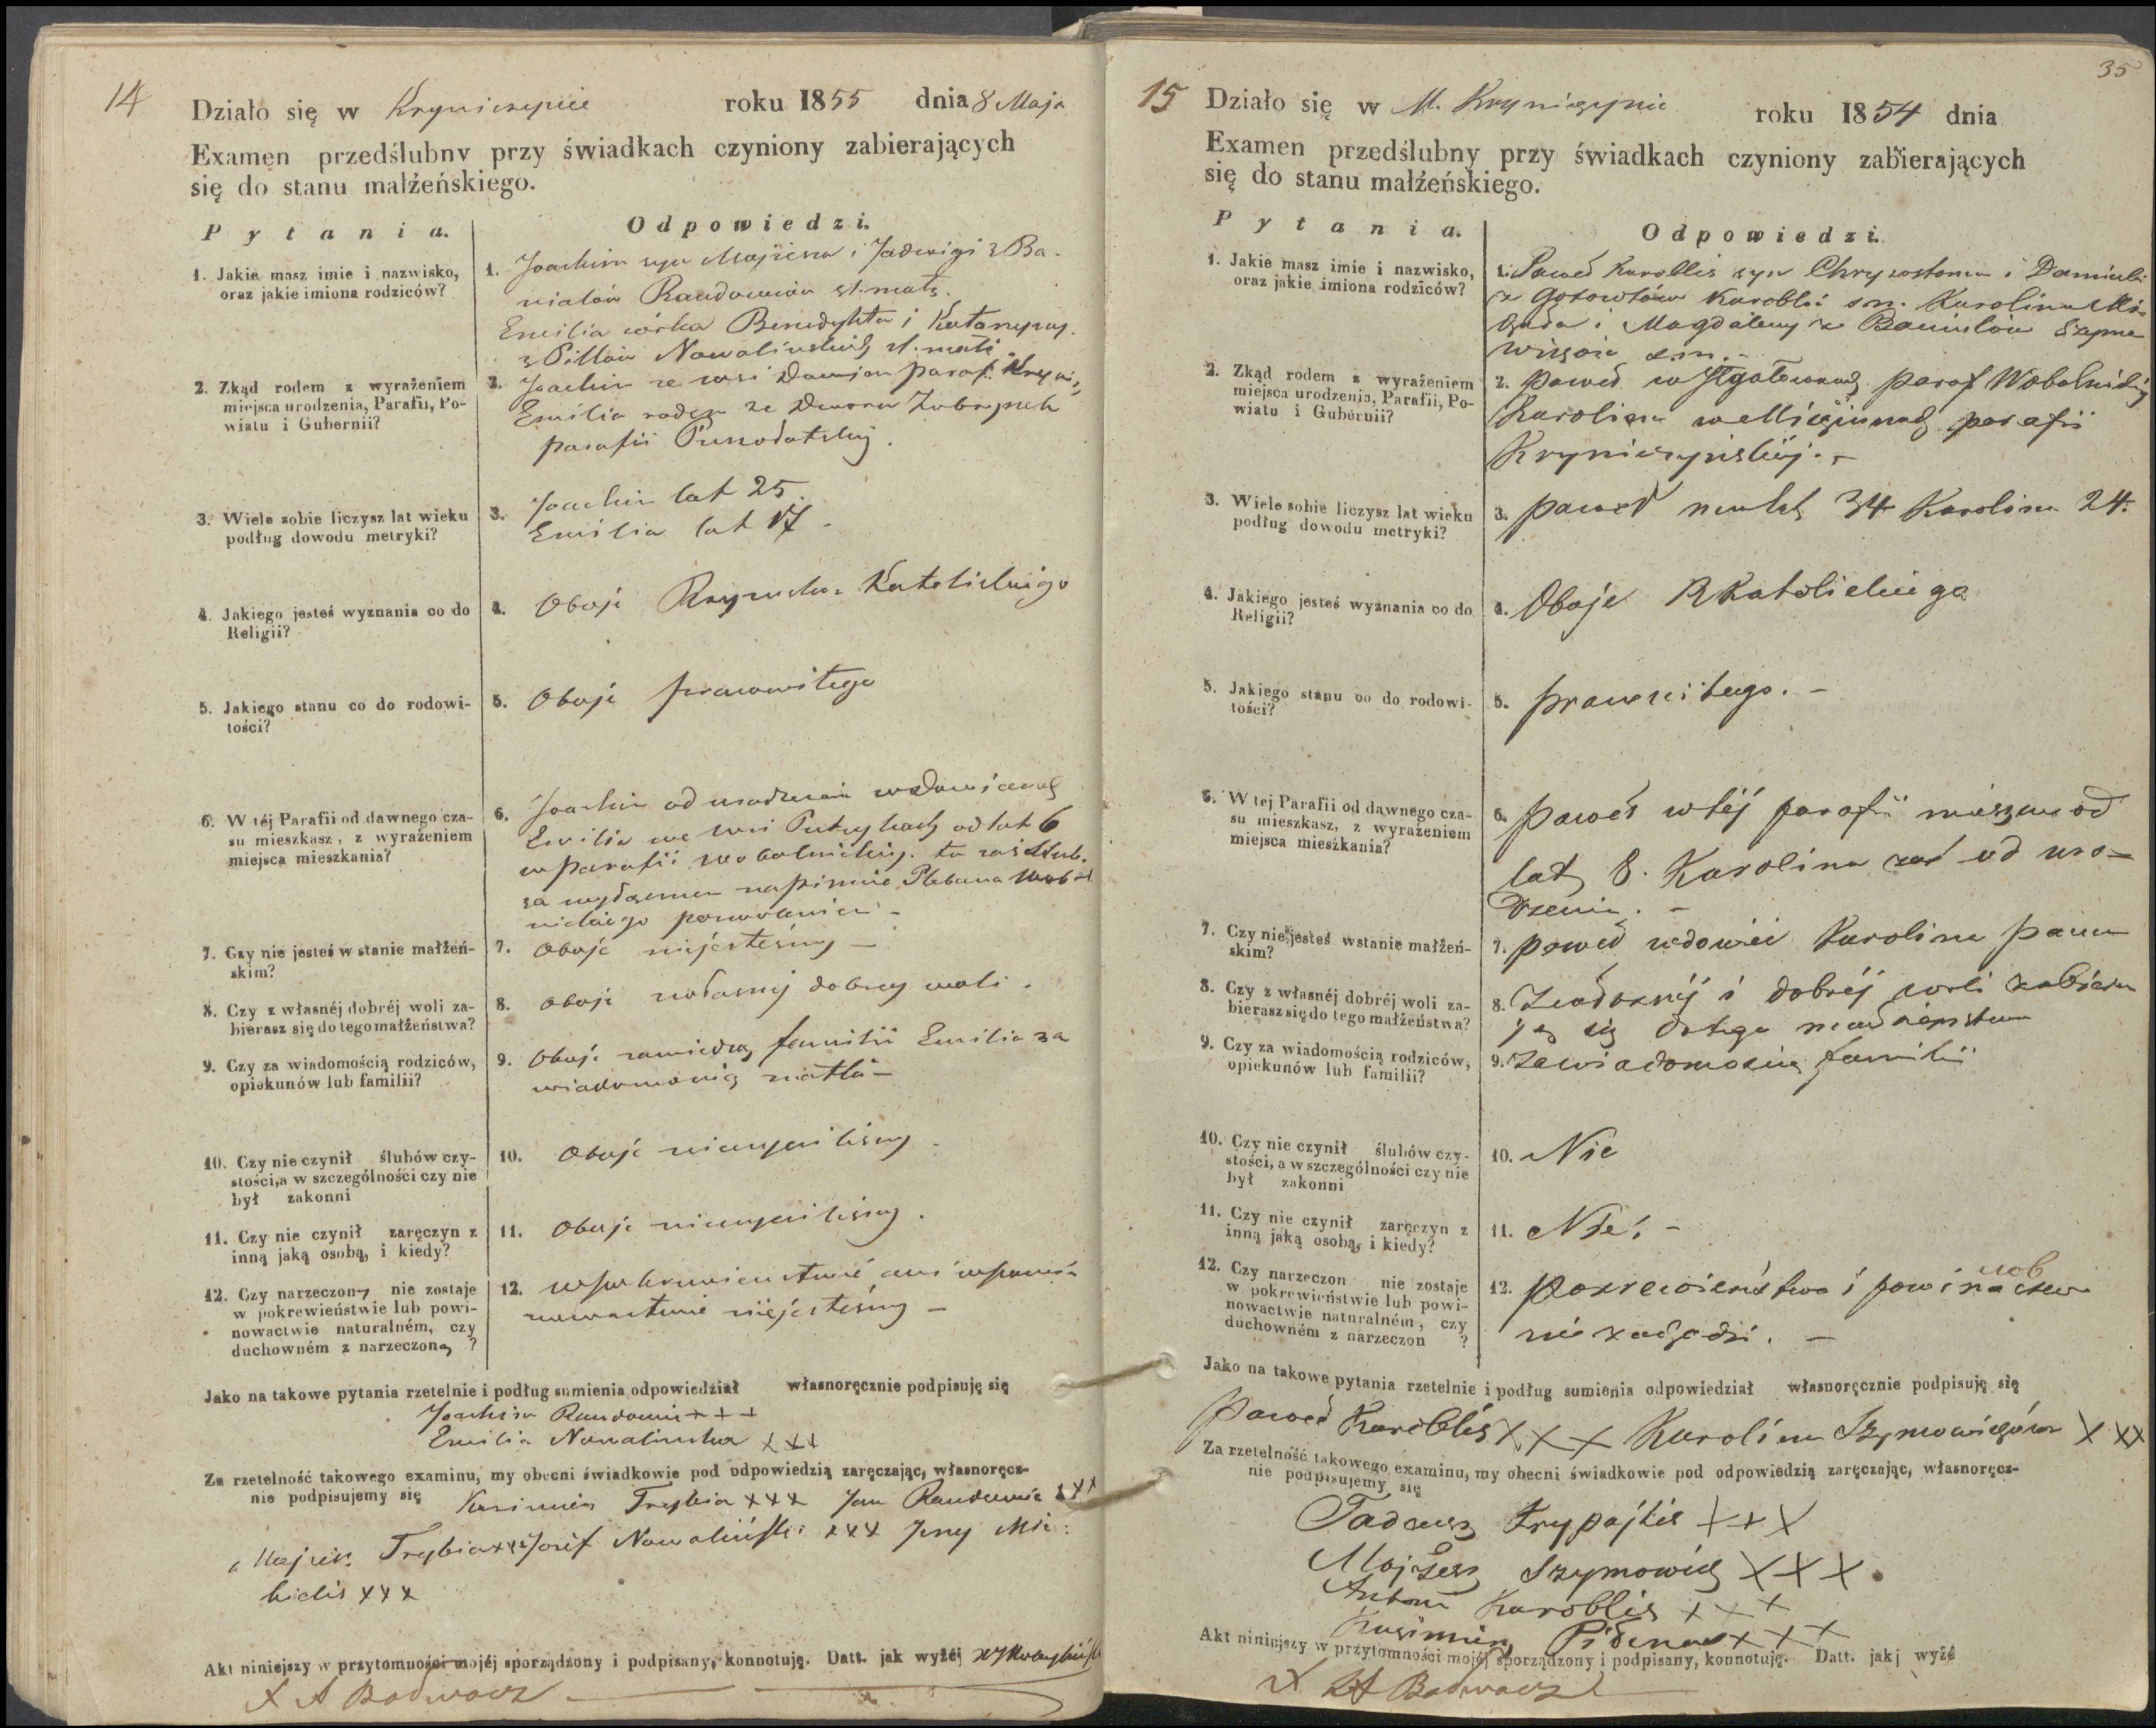 14
Działo się w Kryniczynie roku 1855 dnia 8 Maja
Examen przedślubny przy świadkach czyniony zabierających
się do stanu małżeńskiego.
Pytania.
Odpowiedzi.
1. Jakie masz imie i nazwisko,
oraz jakie imiona rodziców?
1. Joachim syn Mojżesza i Jadwigi z Ba-
niulów Raudomiów sł. małż.
Emilia córka Benedykta i Katarzyny
z Pittów Nowalińskich sł. małż.
2. Zkąd rodem z wyrażeniem
miejsca urodzenia, Parafii, Po-
wiatu i Gubernii?
2. Joachim ze wsi paraf. Kryni.
Emilia rodem ze Dworu
parafii
3. Wiele sobie liczysz lat wieku
podług dowodu metryki?
3. Joachim lat 25.
Emilia lat 17 -
4. Jakiego jesteś wyznania co do
Religii?
4. Oboje Rzymsko-Katolickiego
5. Jakiego stanu co do rodowi-
tości?
5. Oboje prawowitego
6. W téj Parafii od dawnego cza-
su mieszkasz, z wyrażeniem
miejsca mieszkania?
6. Joachim od urodzenia
Emilia we wsi od lat 6
w parafii wobolnickiej. tu zaś
za na piśmie Plebana Wobol-
nickiego pozwoleniem -
7. Czy nie jesteś w stanie małżeń-
skim?
7. Oboje niejesteśmy -
8. Czy z własnéj dobréj woli za-
bierasz się do tego małżeństwa?
8. Oboje z własnej dobrej woli.
9. Czy za wiadomością rodziców,
opiekunów lub familii?
9. Oboje za wiedzą familii Emilia za
wiadomością matki -
10. Czy nie czynił ślubów czy-
stości, a w szczególności czy nie
był zakonni
10. Oboje nieczyniliśmy -
11. Czy nie czynił zaręczyn z
inną jaką osobą, i kiedy?
11. Oboje nieczyniliśmy.
12. Czy narzeczony nie zostaje
w pokrewieństwie lub powi-
nowactwie naturalném, czy
duchowném z narzeczoną ?
12. w pokrewieństwie ani w powi-
nowactwie niejesteśmy -
Jako na takowe pytania rzetelnie i podług sumienia odpowiedział własnoręcznie podpisuję się
Joachim Raudomis + + +
Emilia Nowalińska x x x
Za rzetelność takowego examinu, my obecni świadkowie pod odpowiedzią zaręczając, własnoręcz-
nie podpisujemy się Kazimierz Trybia x x x Jan Raudomis x x x
Mojżesz Trybia x x x Józef Nowaliński x x x Jerzy Mi-
kielis x x x
Akt niniejszy w przytomności mojéj sporządzony i podpisany, konnotuję. Datt. jak wyżéj
X A Bodwocz
35
15
Działo się w M. Kryniczynie roku 1854 dnia
Examen przedślubny przy świadkach czyniony zabierających
się do stanu małżeńskiego.
Pytania.
Odpowiedzi.
1. Jakie masz imie i nazwisko,
oraz jakie imiona rodziców?
1. Paweł Karoblis syn Chryzostoma i Danieli
z Gotowtów Karobli s.m. Karolina Mi-
chała i Magdaleny z Baniulów Szymo-
wiczów s.m. -
2. Zkąd rodem z wyrażeniem
miejsca urodzenia, Parafii, Po-
wiatu i Gubernii?
2. Paweł w paraf Wobolnickiej
Karolina w parafii
Kryniczyńskiéj. -
3. Wiele sobie liczysz lat wieku
podług dowodu metryki?
3. Paweł ma lat 34 Karolina 24.
4. Jakiego jesteś wyznania co do
Religii?
4. Oboje R Katolickiego
5. Jakiego stanu co do rodowi-
tości?
5. prawowitego. -
6. W téj Parafii od dawnego cza-
su mieszkasz, z wyrażeniem
miejsca mieszkania?
6. Paweł w téj parafii mieszka od
lat 8. Karolina zaś od uro-
dzenia. -
7. Czy nie jesteś w stanie małżeń-
skim?
7. Paweł wdowiec Karolina Panna
8. Czy z własnéj dobréj woli za-
bierasz się do tego małżeństwa?
8. Z własnéj i dobréj woli zabiera
ją się do tego małżeństwa
9. Czy za wiadomością rodziców,
opiekunów lub familii?
9. Za wiadomością familii
10. Czy nie czynił ślubów czy-
stości, a w szczególności czy nie
był zakonni
10. Nie
11. Czy nie czynił zaręczyn z
inną jaką osobą, i kiedy?
11. Nie. -
12. Czy narzeczon nie zostaje
w pokrewieństwie lub powi-
nowactwie naturalném, czy
duchowném z narzeczon ?
12. Pokrewieństwo i powinowactwo
nie zachodzi. -
Jako na takowe pytania rzetelnie i podług sumienia odpowiedział własnoręcznie podpisuję się
Paweł Karoblis X X X Karolina Szymowiczów X X X
Za rzetelność takowego examinu, my obecni świadkowie pod odpowiedzią zaręczając, własnoręcz-
nie podpisujemy się
Tadeusz Trypajtis X X X
Mojżesz Szymowicz X X X
Antoni Karoblis x x x
Kazimierz x x x
Akt niniejszy w przytomności mojéj sporządzony i podpisany, konnotuję. Datt. jakj wyżé
X A Bodwocz